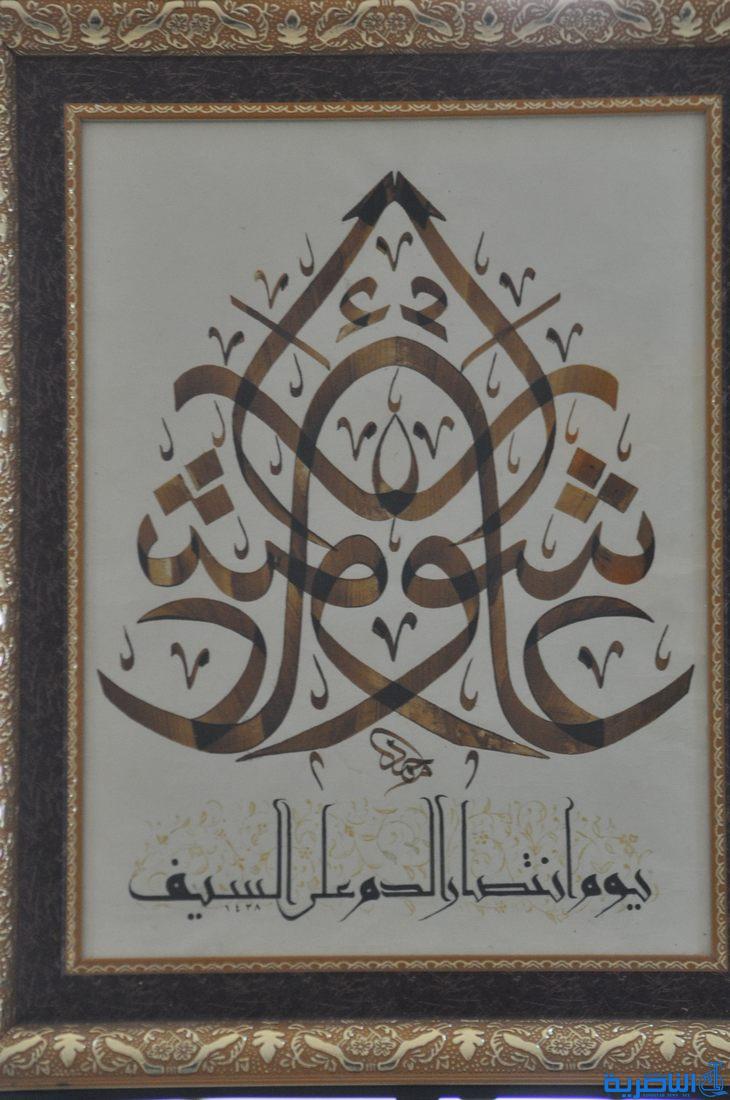 عاشوراء
يوم انتصار الدم على السيف
١٤٣٨
الناصرية